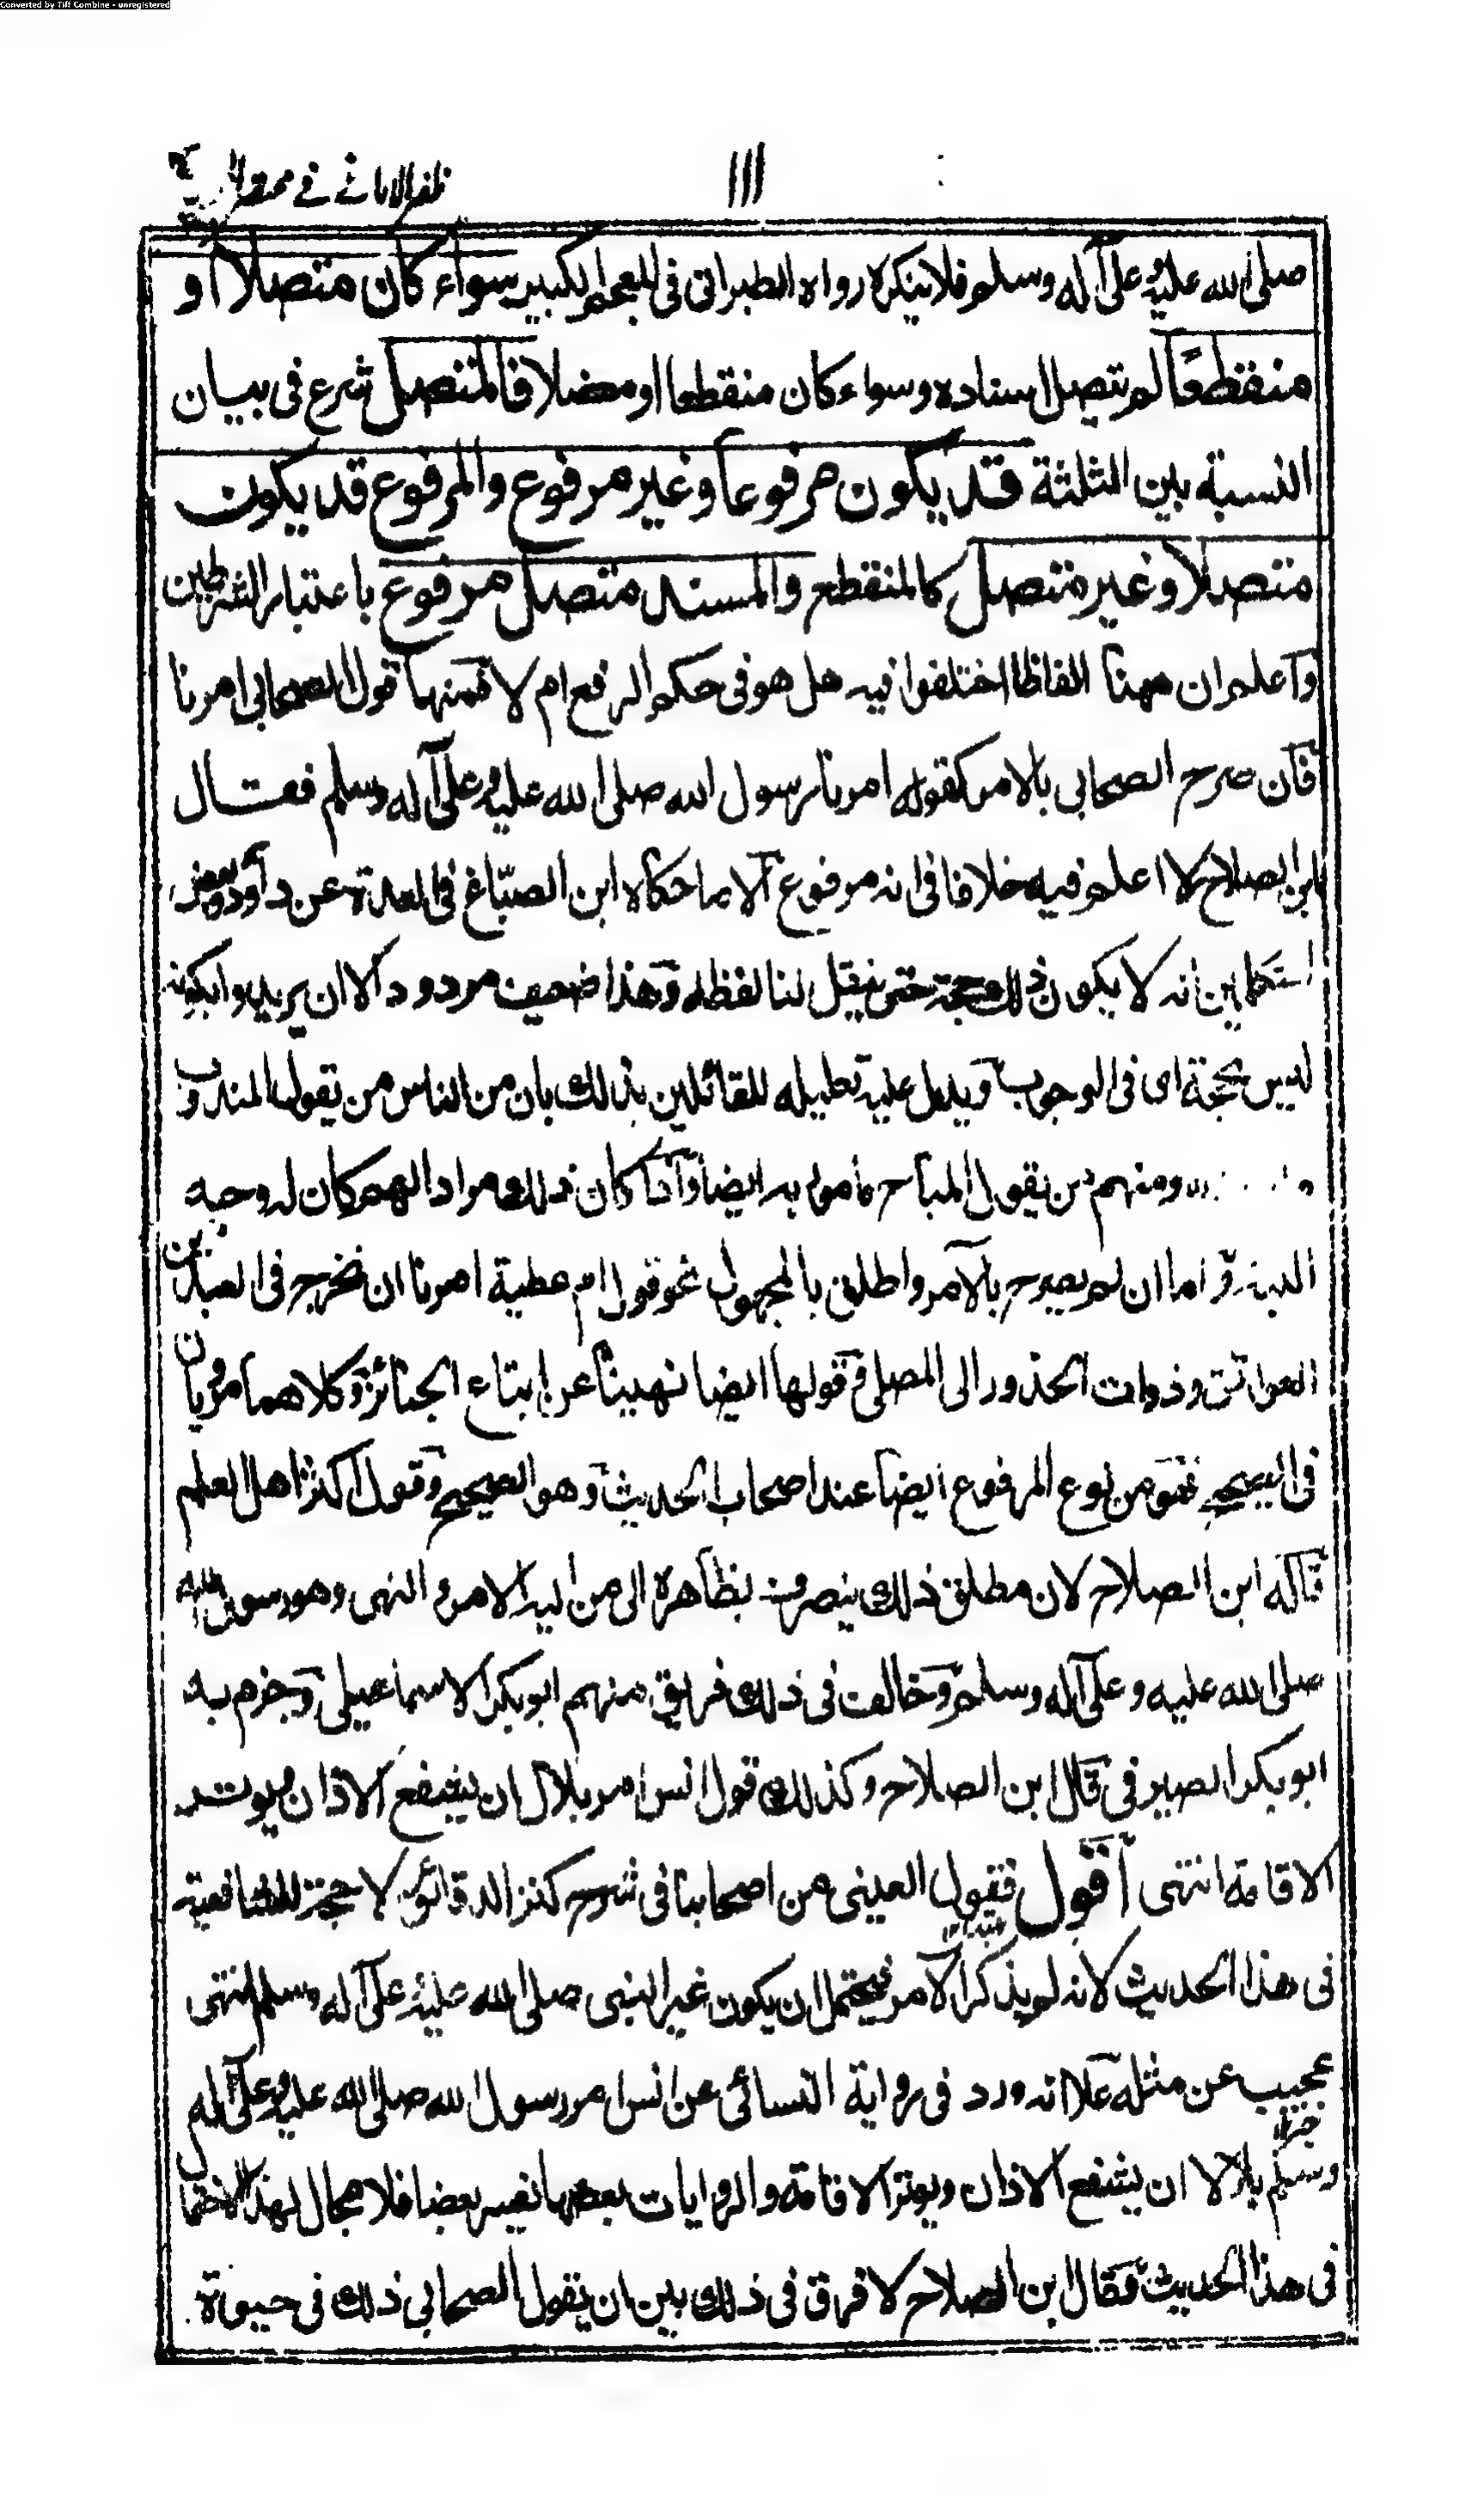 Converted by Tiff Combine - unregistered
ظفر الامانى فى مختصر
١١١
صلى الله عليه وعلى آله وسلم فلا ينكره رواه الطبرانى فى المعجم الكبير سواء كان متصلا او
منقطعًا لم يتصل اسناده وسواء كان منقطعا او معضلا فالمتصل شرع فى بيان
النسبة بين الثلثة قد يكون مرفوعا وغير مرفوع والمرفوع قد يكون
متصلا وغير متصل كالمنقطع والمسند متصل مرفوع باعتبار الشرطين
واعلم ان ههنا الفاظا اختلفوا فيه هل هو فى حكم الرفع ام لا فمنها قول الصحابى امرنا
فان صرح الصحابى بالامر كقوله امرنا رسول الله صلى الله عليه وعلى آله وسلم فقال
ابن الصلاح لا اعلم فيه خلافا فى انه مرفوع الا ما حكاه ابن الصبّاغ فى العدة عن داود وبعض
المتكلمين انه لا يكون ذلك حجة حتى ينقل لنا لفظه وهذا ضعيف مردود الا ان يريدوا بكونه
ليس بحجة اى فى الوجوب ويدل عليه تعليله للقائلين بذلك بان من الناس من يقول المندوب
ومنهم من يقول المباح مأمور به ايضا واذا كان ذلك مرادا لهم كان له وجه
انتهى واما ان لم يصرح بالآمر واطلق بالمجهول نحو قول ام عطية امرنا ان نخرج فى العيدين
العواتق وذوات الخدور الى المصلى وقولها ايضا نهينا عن اتباع الجنائز وكلاهما مرويان
فى الصحيح فهو من نوع المرفوع ايضا عند اصحاب الحديث وهو الصحيح وقول اكثر اهل العلم
قاله ابن الصلاح لان مطلق ذلك ينصرف بظاهره الى من اليه الامر والنهى وهو رسول الله
صلى الله عليه وعلى آله وسلم وخالف فى ذلك فريق منهم ابو بكر الاسماعيلى وجزم به
ابو بكر الصيرفى قال ابن الصلاح وكذلك قول انس امر بلال ان يشفع الاذان ويوتر
الاقامة انتهى اقول فقول العينى من اصحابنا فى شرح كنز الدقائق لا حجة للشافعية
فى هذا الحديث لانه لم يذكر الآمر فيحتمل ان يكون غير النبى صلى الله عليه وعلى آله وسلم انتهى
عجيب عن مثله علا انه ورد فى رواية النسائى عن انس امر رسول الله صلى الله عليه وعلى آله
وسلم بلالا ان يشفع الاذان ويوتر الاقامة والروايات بعضها تفسر بعضا فلا مجال لهذا الاحتمال
فى هذا الحديث فقال ابن الصلاح لا فرق فى ذلك بين ان يقول الصحابى ذلك فى حيوة